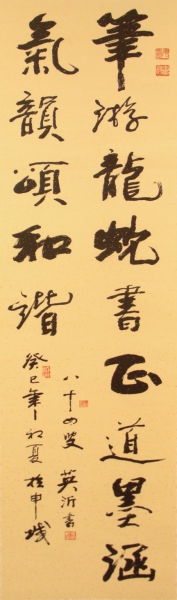 筆游龍蛇書正道墨涵
氣韻頌和諧
癸巳年初夏於申城
八十四叟英沂書